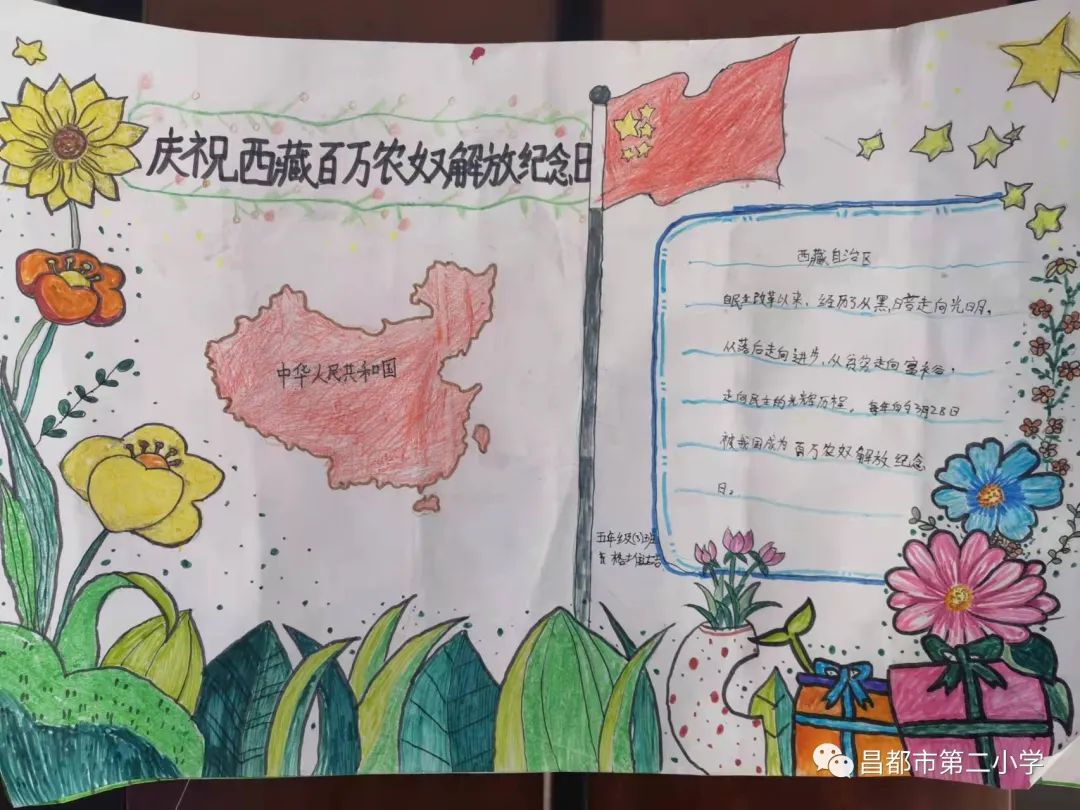 庆祝西藏百万农奴解放纪念日
中华人民共和国
西藏自治区
自民主改革以来,经历了从黑暗走向光明,
从落后走向进步,从贫穷走向富裕,
走向民主的光辉历程,每年的3月28日
被我国成为百万农奴解放纪念
日。
五年级(3)班
昌都市第二小学